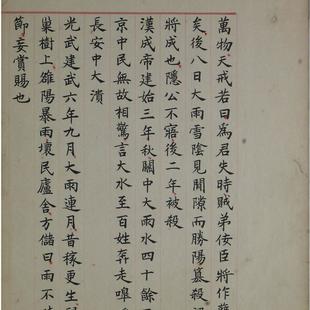 萬物天戒若曰為君失時賊弟佞臣將作
矣後八日大雨雪陰見間隙而勝陽篡殺
將成也隱公不寤後二年被殺
漢成帝建始三年秋關中大雨水四十餘
京中民無故相驚言大水至百姓奔走嘷
長安中大潰
光武建武六年九月大雨連月苗稼更生
巢樹上雒陽暴雨壞民廬舍方儲曰雨不
節妄賞賜也